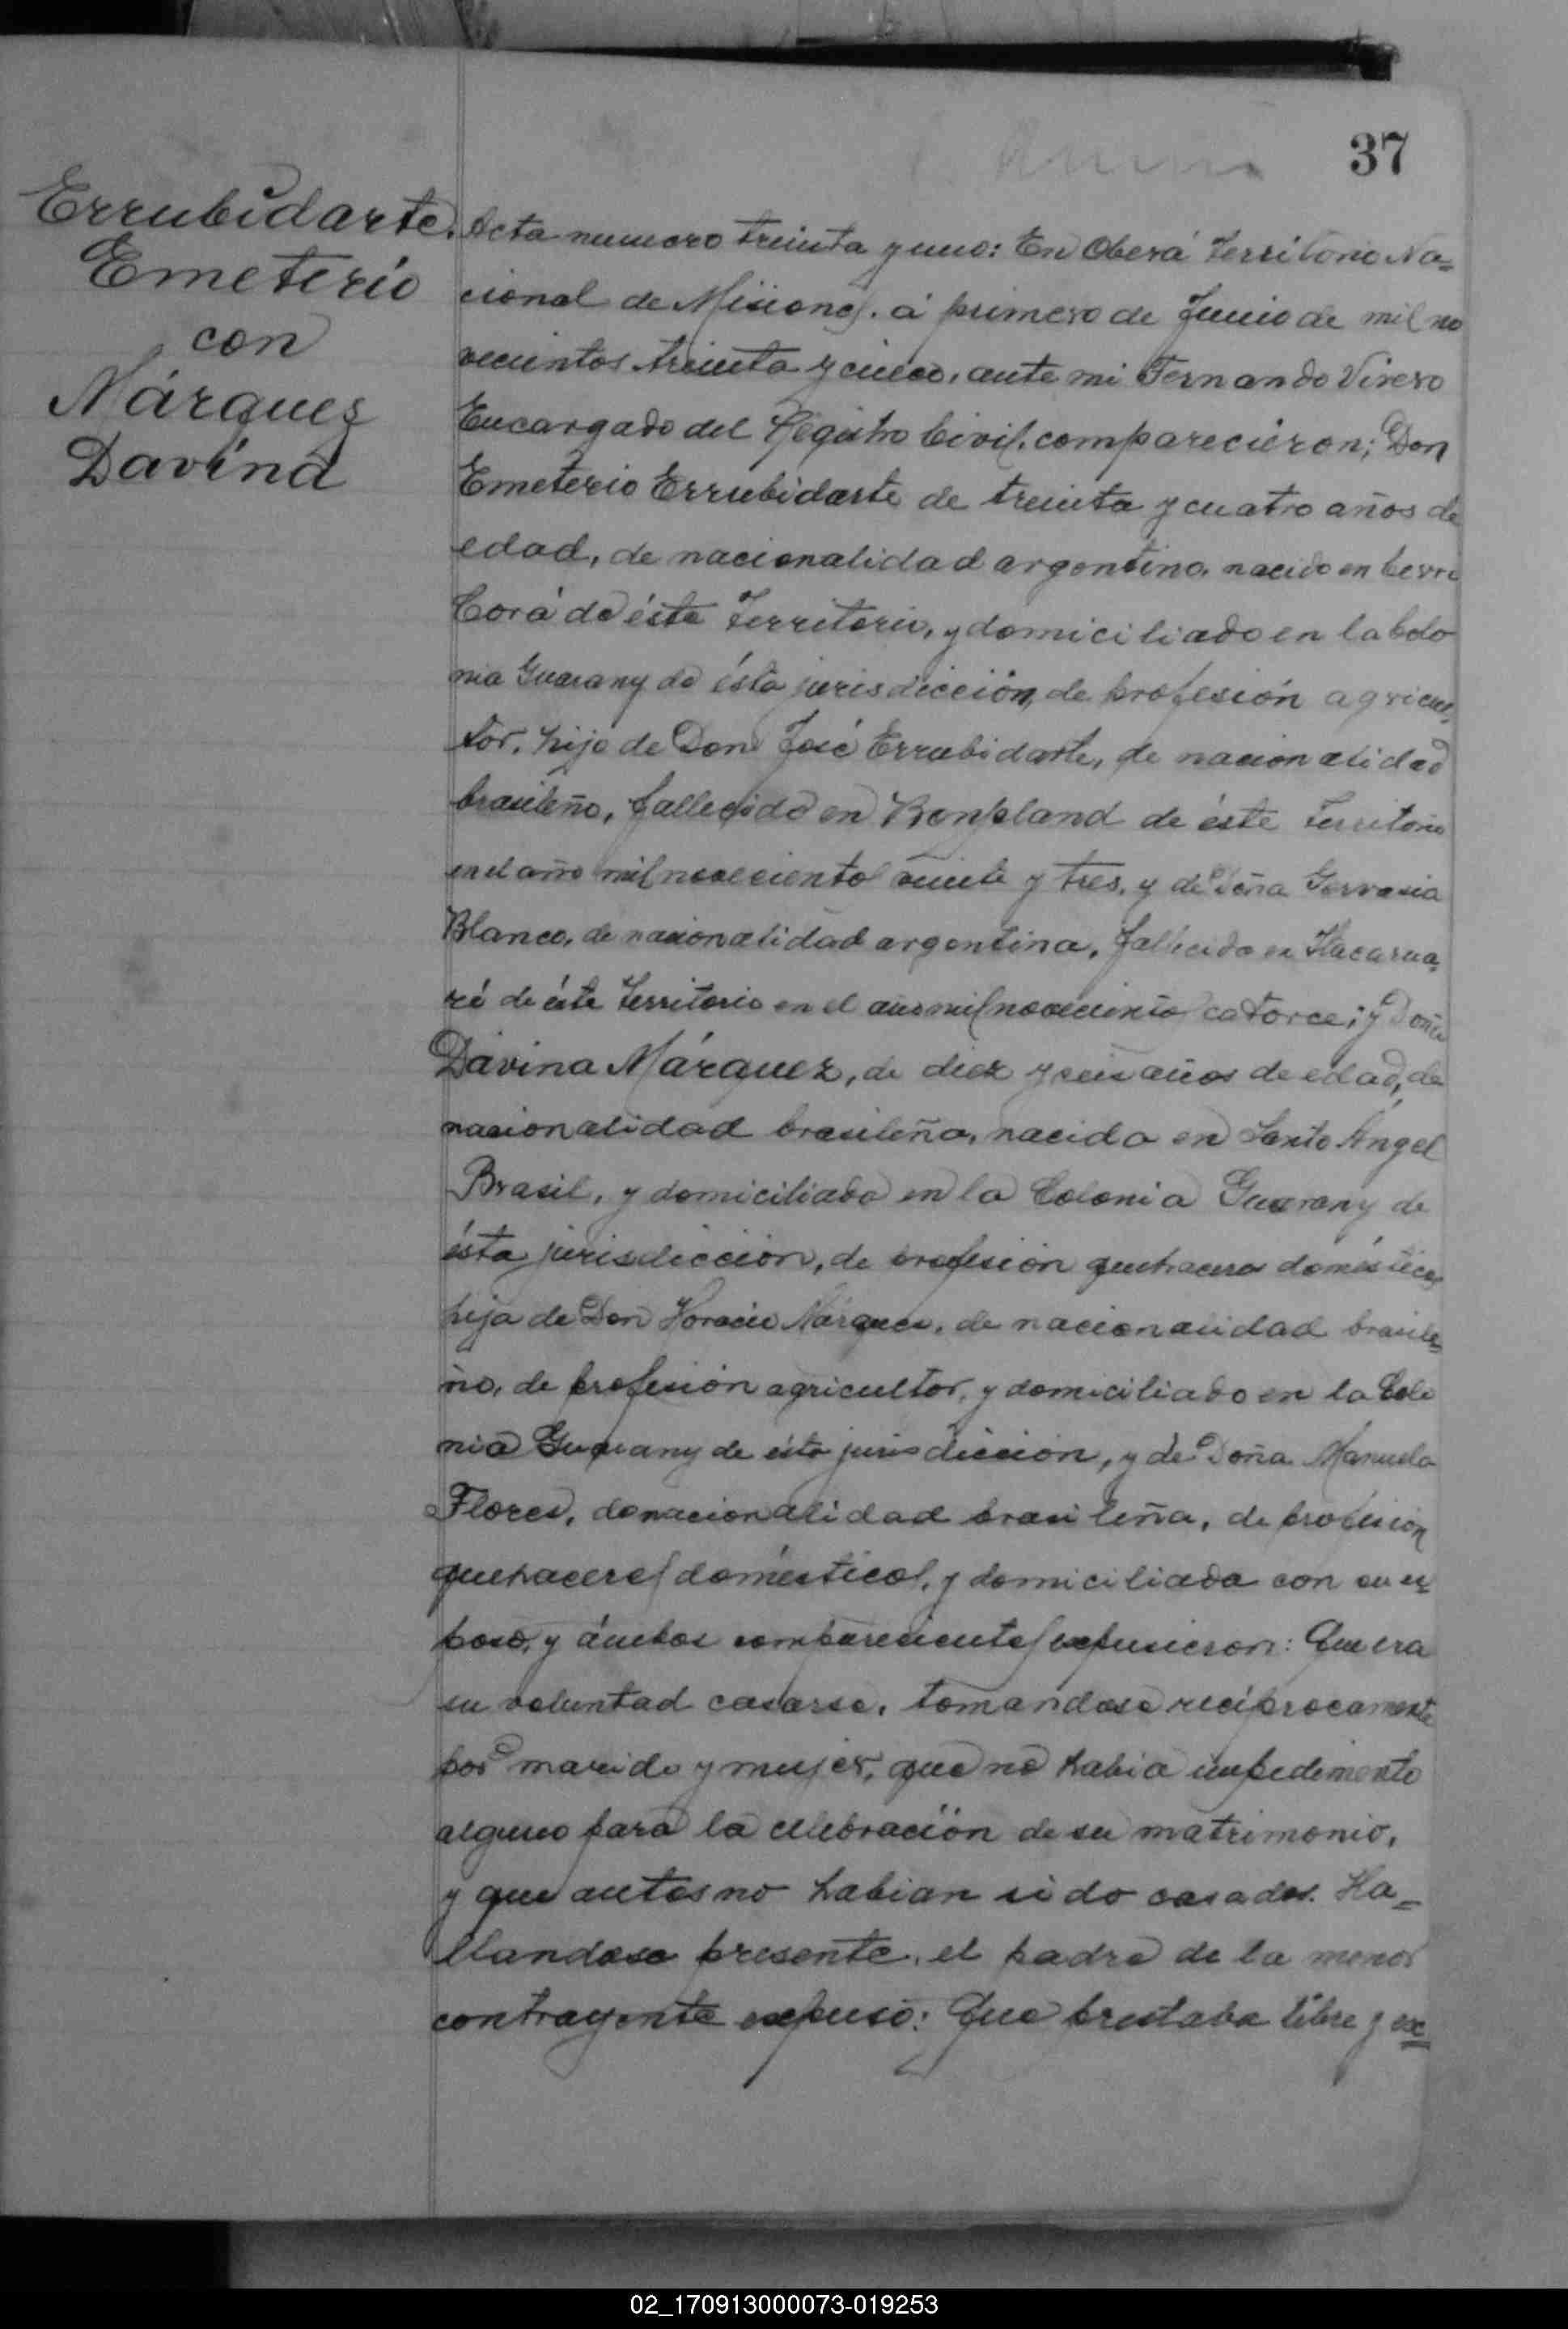 37
Errubidarte.
Emeterio
con
Márquez
Davina
Acta numero treinta y uno: En Oberá Territorio Na=
cional de Misiones. á primero de Junio de mil no
vecientos treinta y cinco, ante mi Fernando Vivero
Encargado del Registro Civil. comparecieron; Don
Emeterio Errubidarte de treinta y cuatro años de
edad, de nacionalidad argentino, nacido en Cerro
Corá de ésta Territorio, y domiciliado en la Colo
nia Guarany de ésta jurisdicción, de profesión agricul,
tor, hijo de Don José Errubidarte, de nacionalidad
brasileño, fallecido en Bonpland de éste Territorio
en el año mil novecientos veinte y tres, y de Doña Gervasia
Blanco, de nacionalidad argentina, fallecida en Itacarua,
ré de éste Territorio en el año mil novecientos catorce; y Doña
Davina Márquez, de diez y seis años de edad, de
nacionalidad brasileña, nacida en Santo Ángel
Brasil, y domiciliada en la Colonia Guarany de
ésta jurisdicción, de profesión quehaceres domésticos
hija de Don Horacio Márquez, de nacionalidad brasile=
ño, de profesión agricultor, y domiciliado en la Colo
nia Guarany de ésta jurisdicción, y de Doña Manuela
Flores, de nacionalidad brasileña, de profesión
quehaceres domésticos, y domiciliada con su es
poso, y ámbos comparecientes expusieron: Que era
su voluntad casarse, tomandose recíprocamente
por marido y mujer, que no habia impedimento
alguno para la celebración de su matrimonio,
y que antes no habian sido casados. Ha=
llandose presente, el padre de la menor
contrayente expuso: Que prestaba libre y ex
02_170913000073-019253